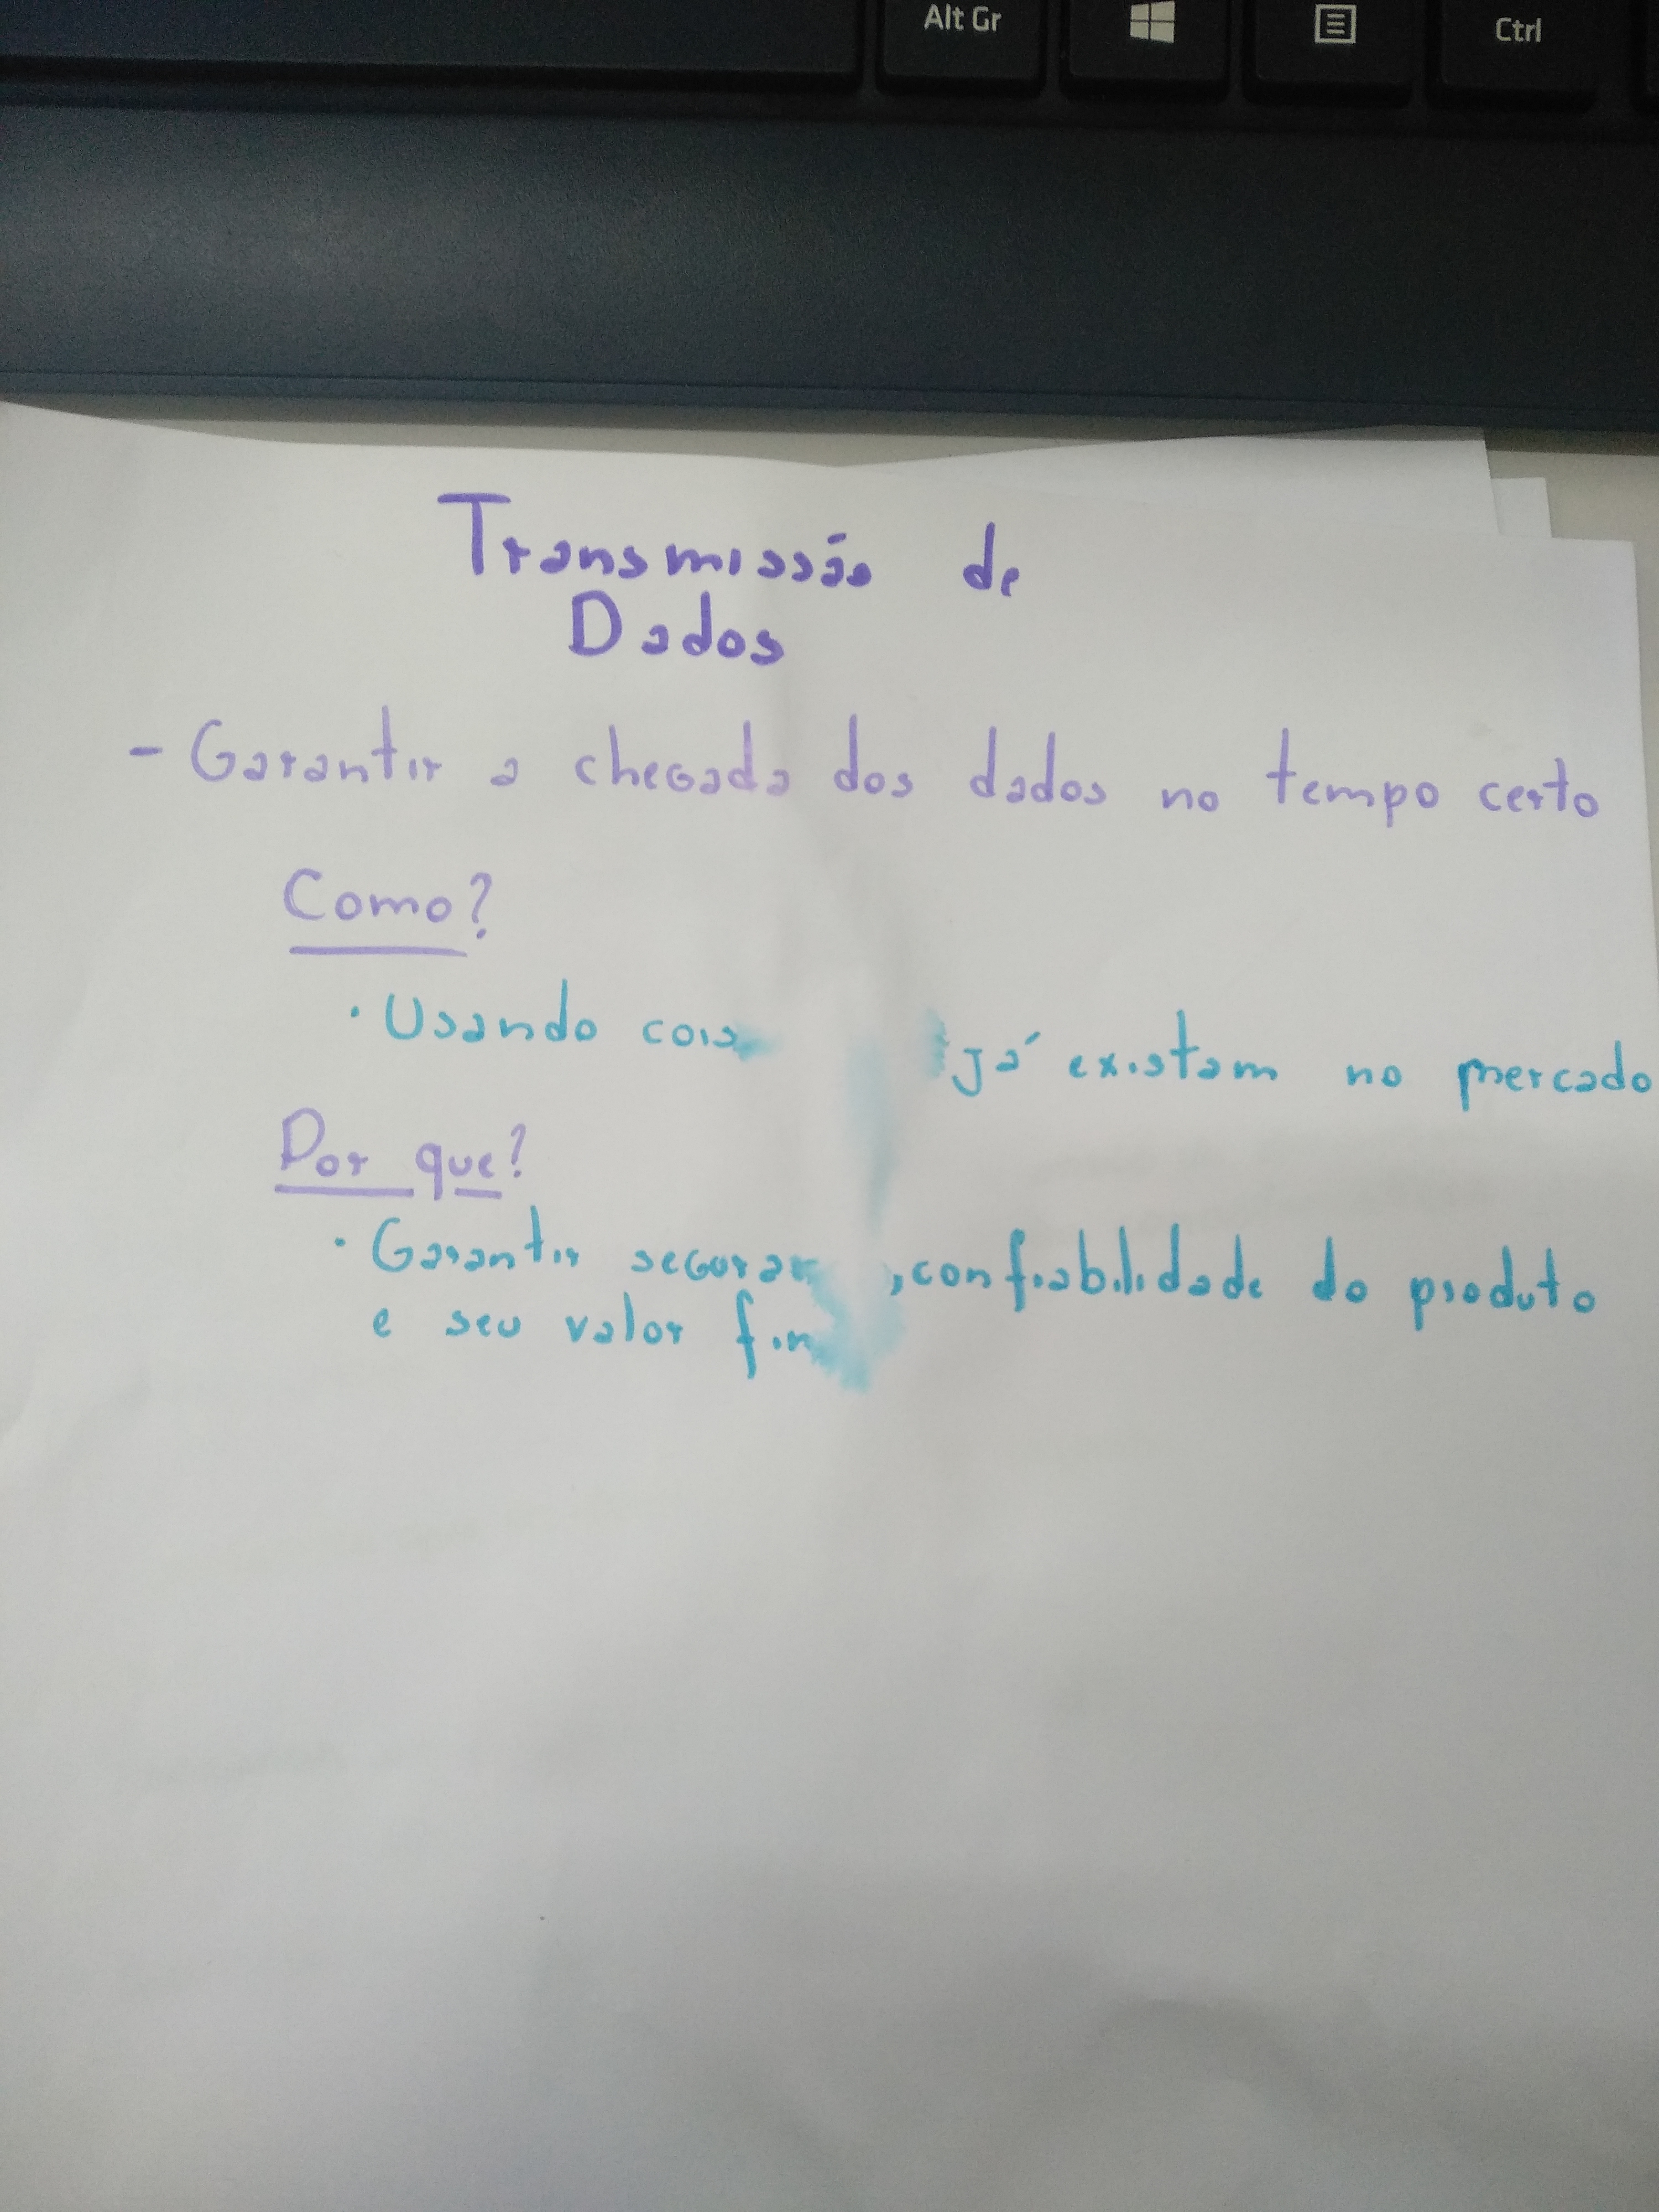 Alt Gr
Ctrl
Transmissão de
Dados
- Garantir a chegada dos dados no tempo certo
Como?
· Usando já existam no mercado
Por que?
· Garantir , confiabilidade do produto
e seu valor